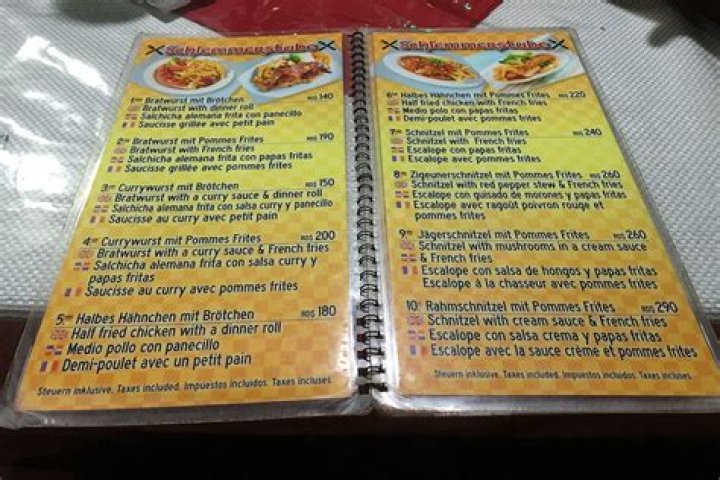 Schlemmerstube
1 Bratwurst mit Brötchen RD$ 140
Bratwurst with dinner roll
Salchicha alemana frita con panecillo
Saucisse grillée avec petit pain
2 Bratwurst mit Pommes Frites RD$ 190
Bratwurst with French fries
Salchicha alemana frita con papas fritas
Saucisse grillée avec pommes frites
3 Currywurst mit Brötchen RD$ 150
Bratwurst with a curry sauce & dinner roll
Salchicha alemana frita con salsa curry y panecillo
Saucisse au curry avec petit pain
4 Currywurst mit Pommes Frites RD$ 200
Bratwurst with a curry sauce & French fries
Salchicha alemana frita con salsa curry y
papas fritas
Saucisse au curry avec pommes frites
5 Halbes Hähnchen mit Brötchen RD$ 180
Half fried chicken with a dinner roll
Medio pollo con panecillo
Demi-poulet avec un petit pain
Steuern inklusive. Taxes included. Impuestos incluidos. Taxes incluses.
Schlemmerstube
6 Halbes Hähnchen mit Pommes Frites RD$ 220
Half fried chicken with French fries
Medio polo con papas fritas
Demi-poulet avec pommes frites
7 Schnitzel mit Pommes Frites RD$ 240
Schnitzel with French fries
Escalope con papas fritas
Escalope avec pommes frites
8 Zigeunerschnitzel mit Pommes Frites RD$ 260
Schnitzel with red pepper stew & French fries
Escalope con guisado de morones y papas fritas
Escalope avec ragoût poivron rouge et
pommes frites
9 Jägerschnitzel mit Pommes Frites RD$ 260
Schnitzel with mushrooms in a cream sauce
& French fries
Escalope con salsa de hongos y papas fritas
Escalope à la chasseur avec pommes frites
10 Rahmschnitzel mit Pommes Frites RD$ 290
Schnitzel with cream sauce & French fries
Escalope con salsa crema y papas fritas
Escalope avec la sauce crème et pommes frites
Steuern inklusive. Taxes included. Impuestos incluidos. Taxes incluses.